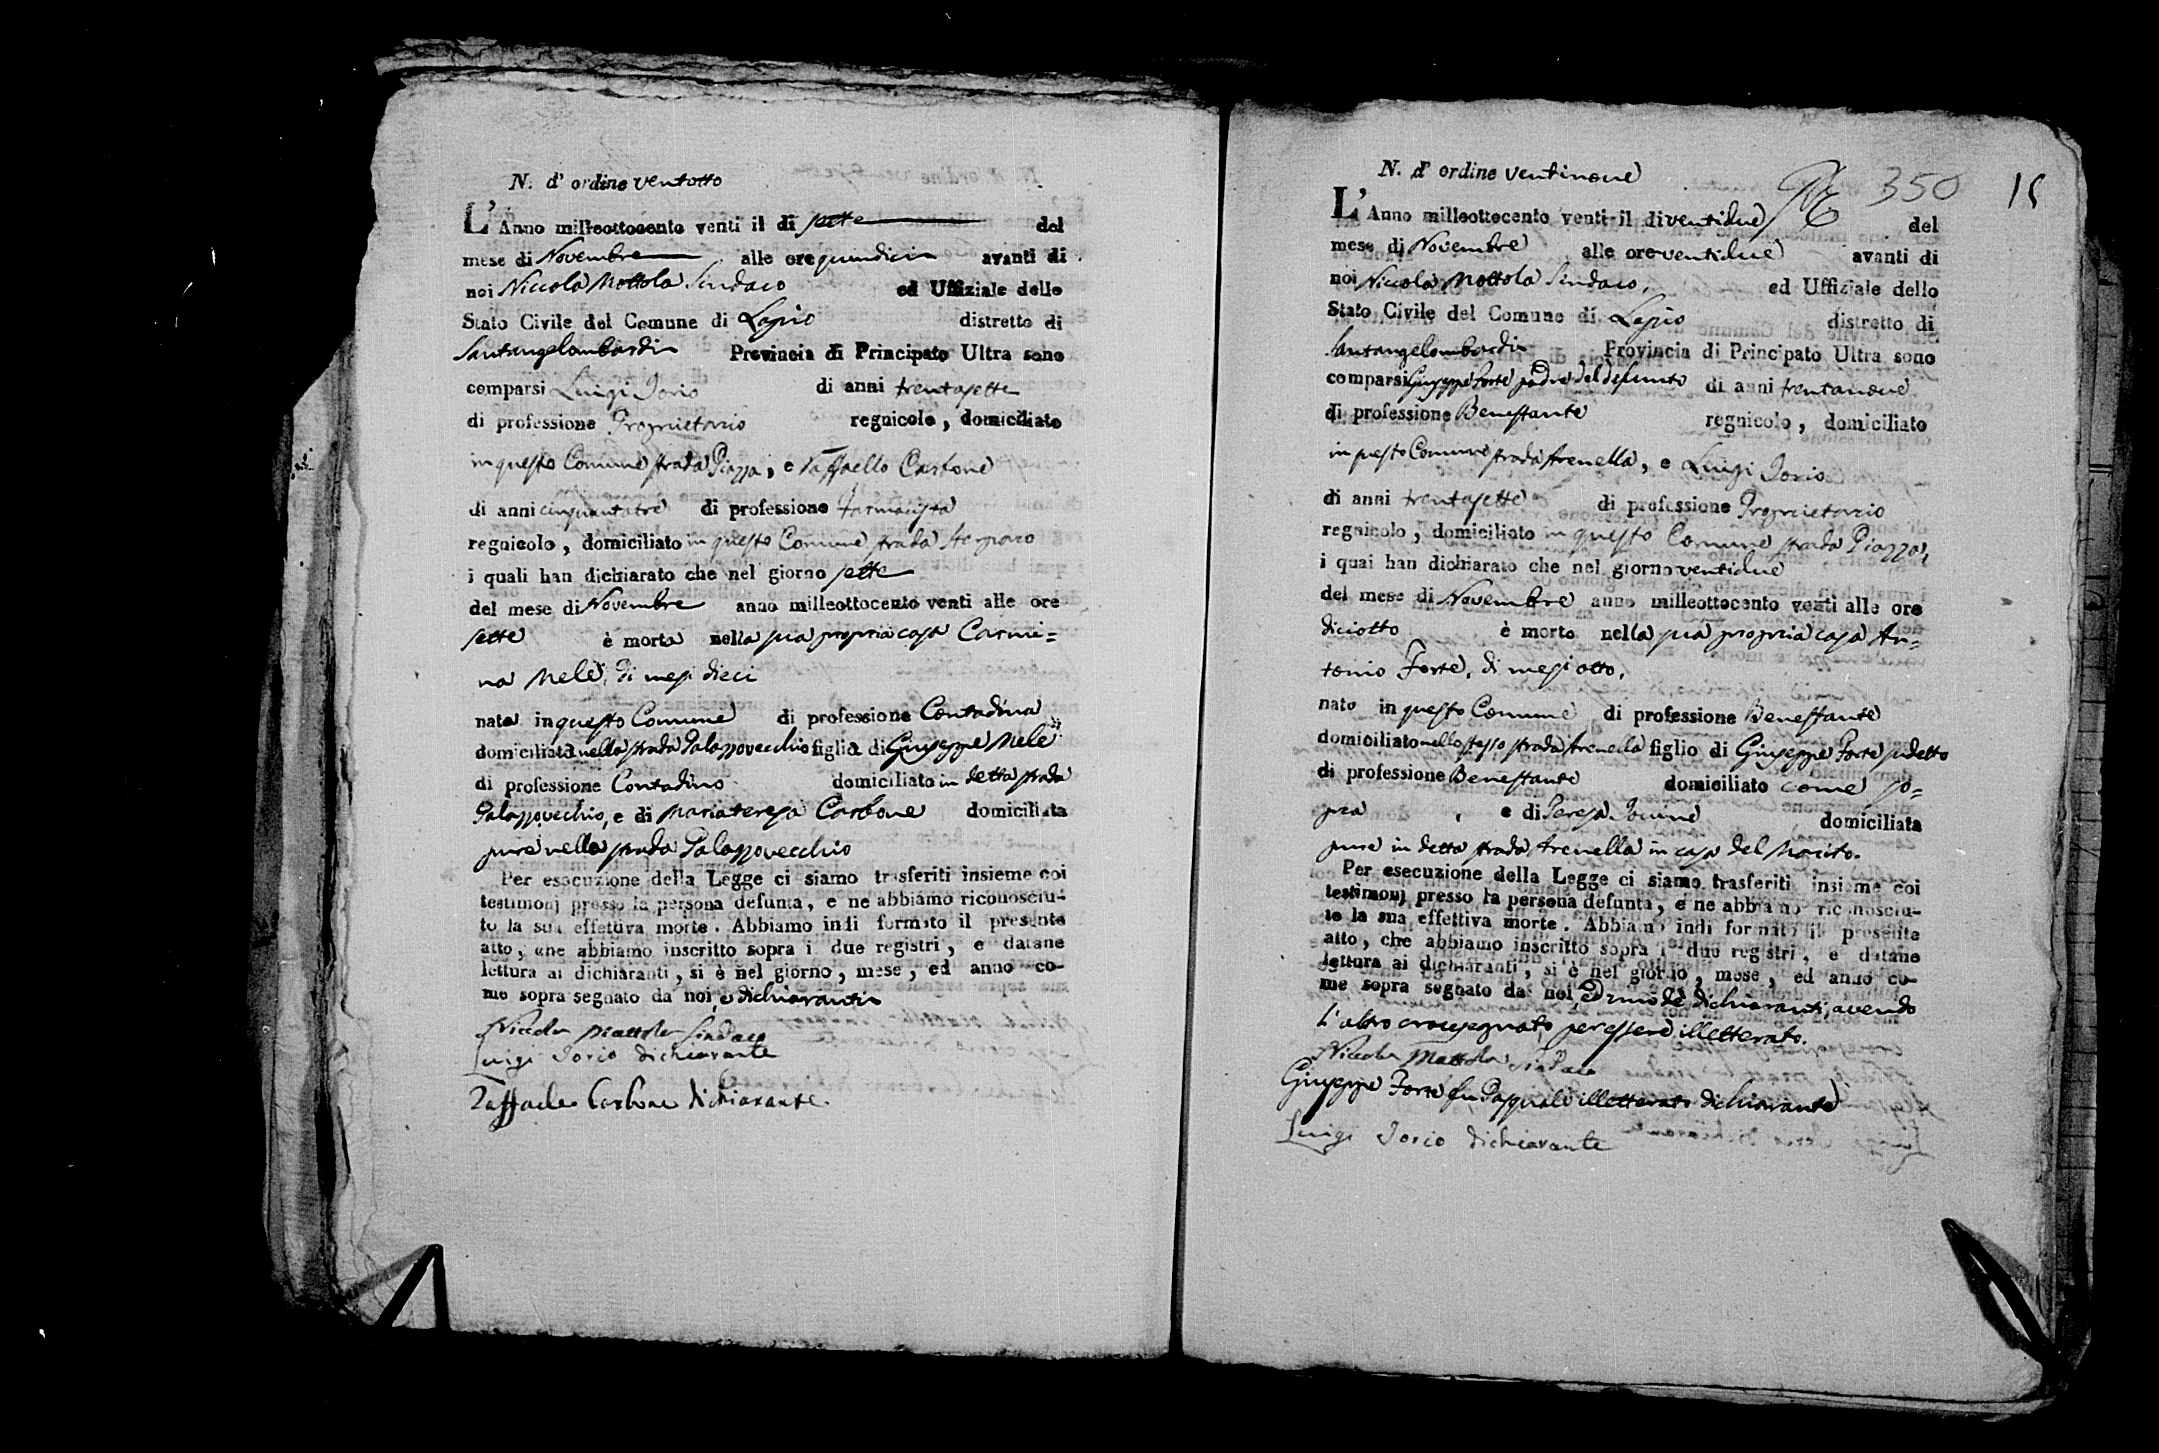 N. d' ordine ventotto
L' Anno milleottocento venti il di sette del
mese di Novembre alle ore quindici avanti di
noi Niccola Mottola Sindaco ed Uffiziale dello
Stato Civile del Comune di Lapio distretto di
Santangelombardi Provincia di Principato Ultra sono
comparsi Luigi Iorio di anni trentasette
di professione Proprietario regnicolo, domiciliato
in questo Comune strada Piazza, e Raffaello Carbone
di anni cinquantatre di professione Farmacista
regnicolo, domiciliato in questo Comune strada
i quali han dichiarato che nel giorno sette
del mese di Novembre anno milleottocento venti alle ore
sette è morta nella sua propria casa Carmi=
na Mele, di mesi dieci
nata in questo Comune di professione Contadina
domiciliata nella strada Palazzovecchio figlia di Giuseppe Mele
di professione Contadino domiciliato in detta strada
Palazzovecchio, e di Mariateresa Carbone domiciliata
pure nella strada Palazzovecchio
Per esecuzione della Legge ci siamo trasferiti insieme coi
testimonj presso la persona defunta, e ne abbiamo riconosciu-
to la sua effettiva morte. Abbiamo indi formato il presente
atto, che abbiamo inscritto sopra i due registri, e datane
lettura ai dichiaranti, si è nel giorno, mese, ed anno co-
me sopra segnato da noi, e dichiaranti
Niccola Mottola Sindaco
Luigi Iorio dichiarante
Raffaele Carbone dichiarante
N. d' ordine ventinove
350 15
L' Anno milleottocento venti il di ventidue del
mese di Novembre alle ore ventidue avanti di
noi Niccola Mottola Sindaco, ed Uffiziale dello
Stato Civile del Comune di Lapio distretto di
Santangelombardi Provincia di Principato Ultra sono
comparsi Giuseppe Forte padre del defunto di anni trentanove
di professione Benestante regnicolo, domiciliato
in questo Comune strada Arenella, e Luigi Iorio
di anni trentasette di professione Proprietario
regnicolo, domiciliato in questo Comune strada Piazza,
i quai han dichiarato che nel giorno ventidue
del mese di Novembre anno milleottocento venti alle ore
diciotto è morto nella sua propria casa An=
tonio Forte, di mesi otto,
nato in questo Comune di professione Benestante
domiciliato nello stesso strada Arenella figlio di Giuseppe Forte sudetto
di professione Benestante domiciliato come so=
pra, e di Teresa domiciliata
pure in detta strada Arenella in casa del Marito.
Per esecuzione della Legge ci siamo trasferiti insieme coi
testimonj presso la persona defunta, e ne abbiamo riconosciu-
to la sua effettiva morte. Abbiamo indi formato il presente
atto, che abbiamo inscritto sopra i due registri, e datane
lettura ai dichiaranti, si è nel giorno, mese, ed anno co-
me sopra segnato da noi, ed uno de' dichiaranti, avendo
l'altro crocesegnato, per essere illetterato.
Niccola Mottola Sindaco
Giuseppe Forte fu Pasquale illetterato dichiarante
Luigi Iorio dichiarante